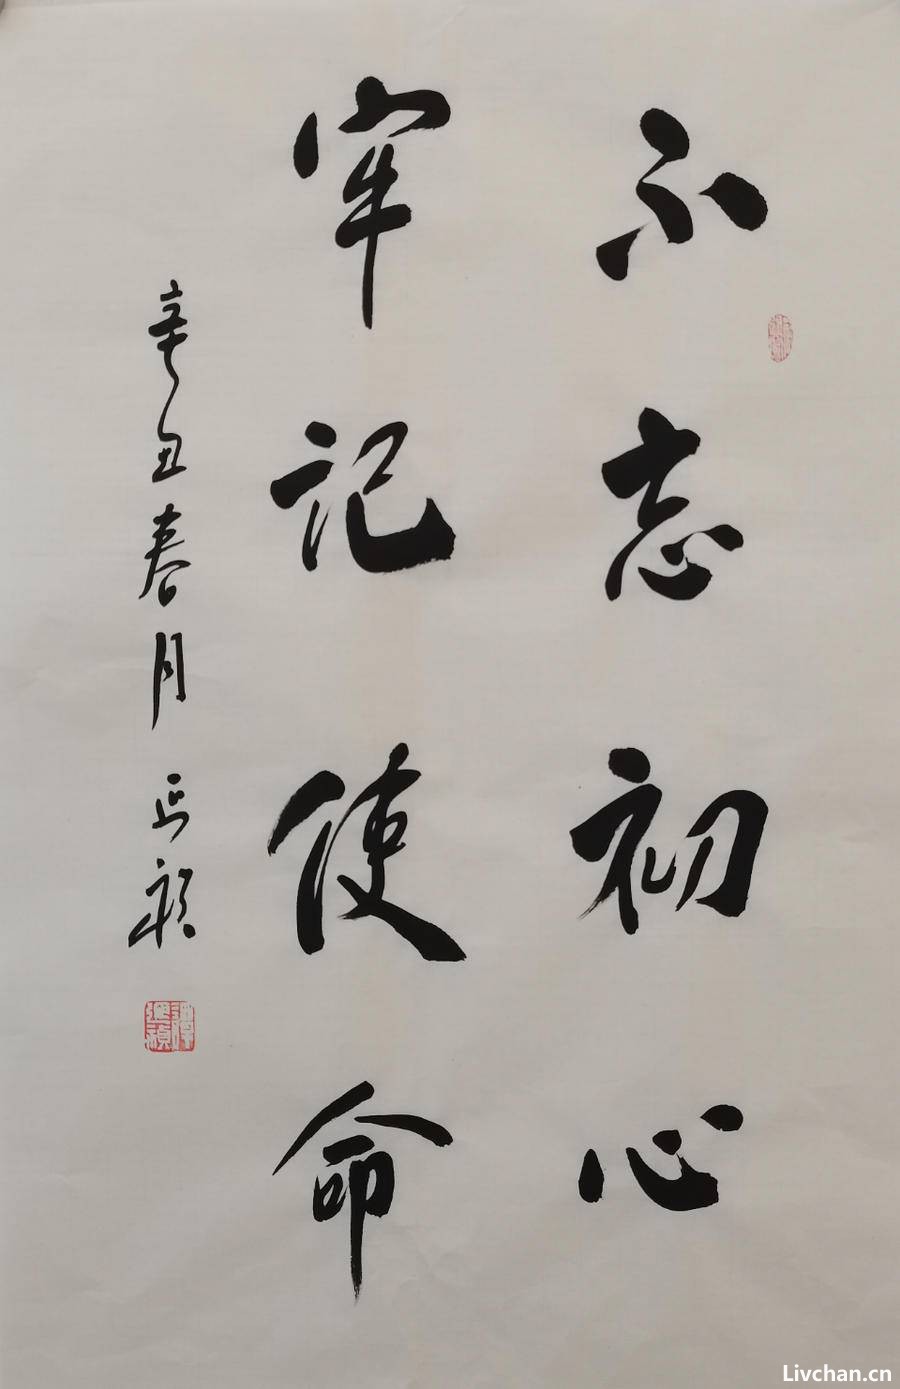 不忘初心
牢记使命
辛丑春月
Livchan.cn